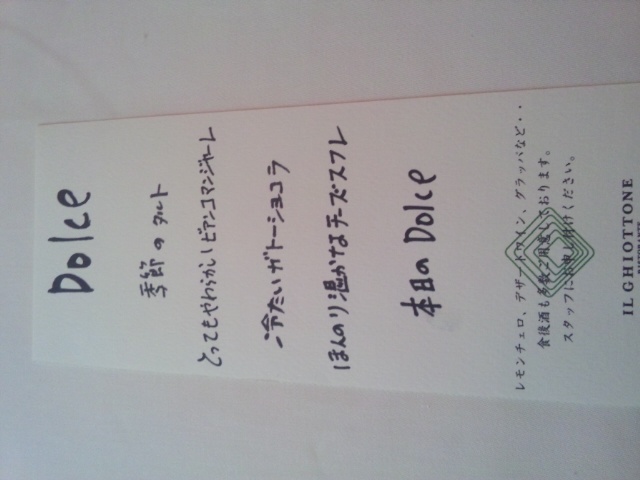 Dolce
季節のタルト
とってもやわらかいビアンコマンジャーレ
冷たいガトーショコラ
ほんのり温かなチーズスフレ
本日のDolce
レモンチェロ、デザートワイン、グラッパなど・・
食後酒も多数ご用意しております。
スタッフにお申し付けください。
IL GHIOTTONE